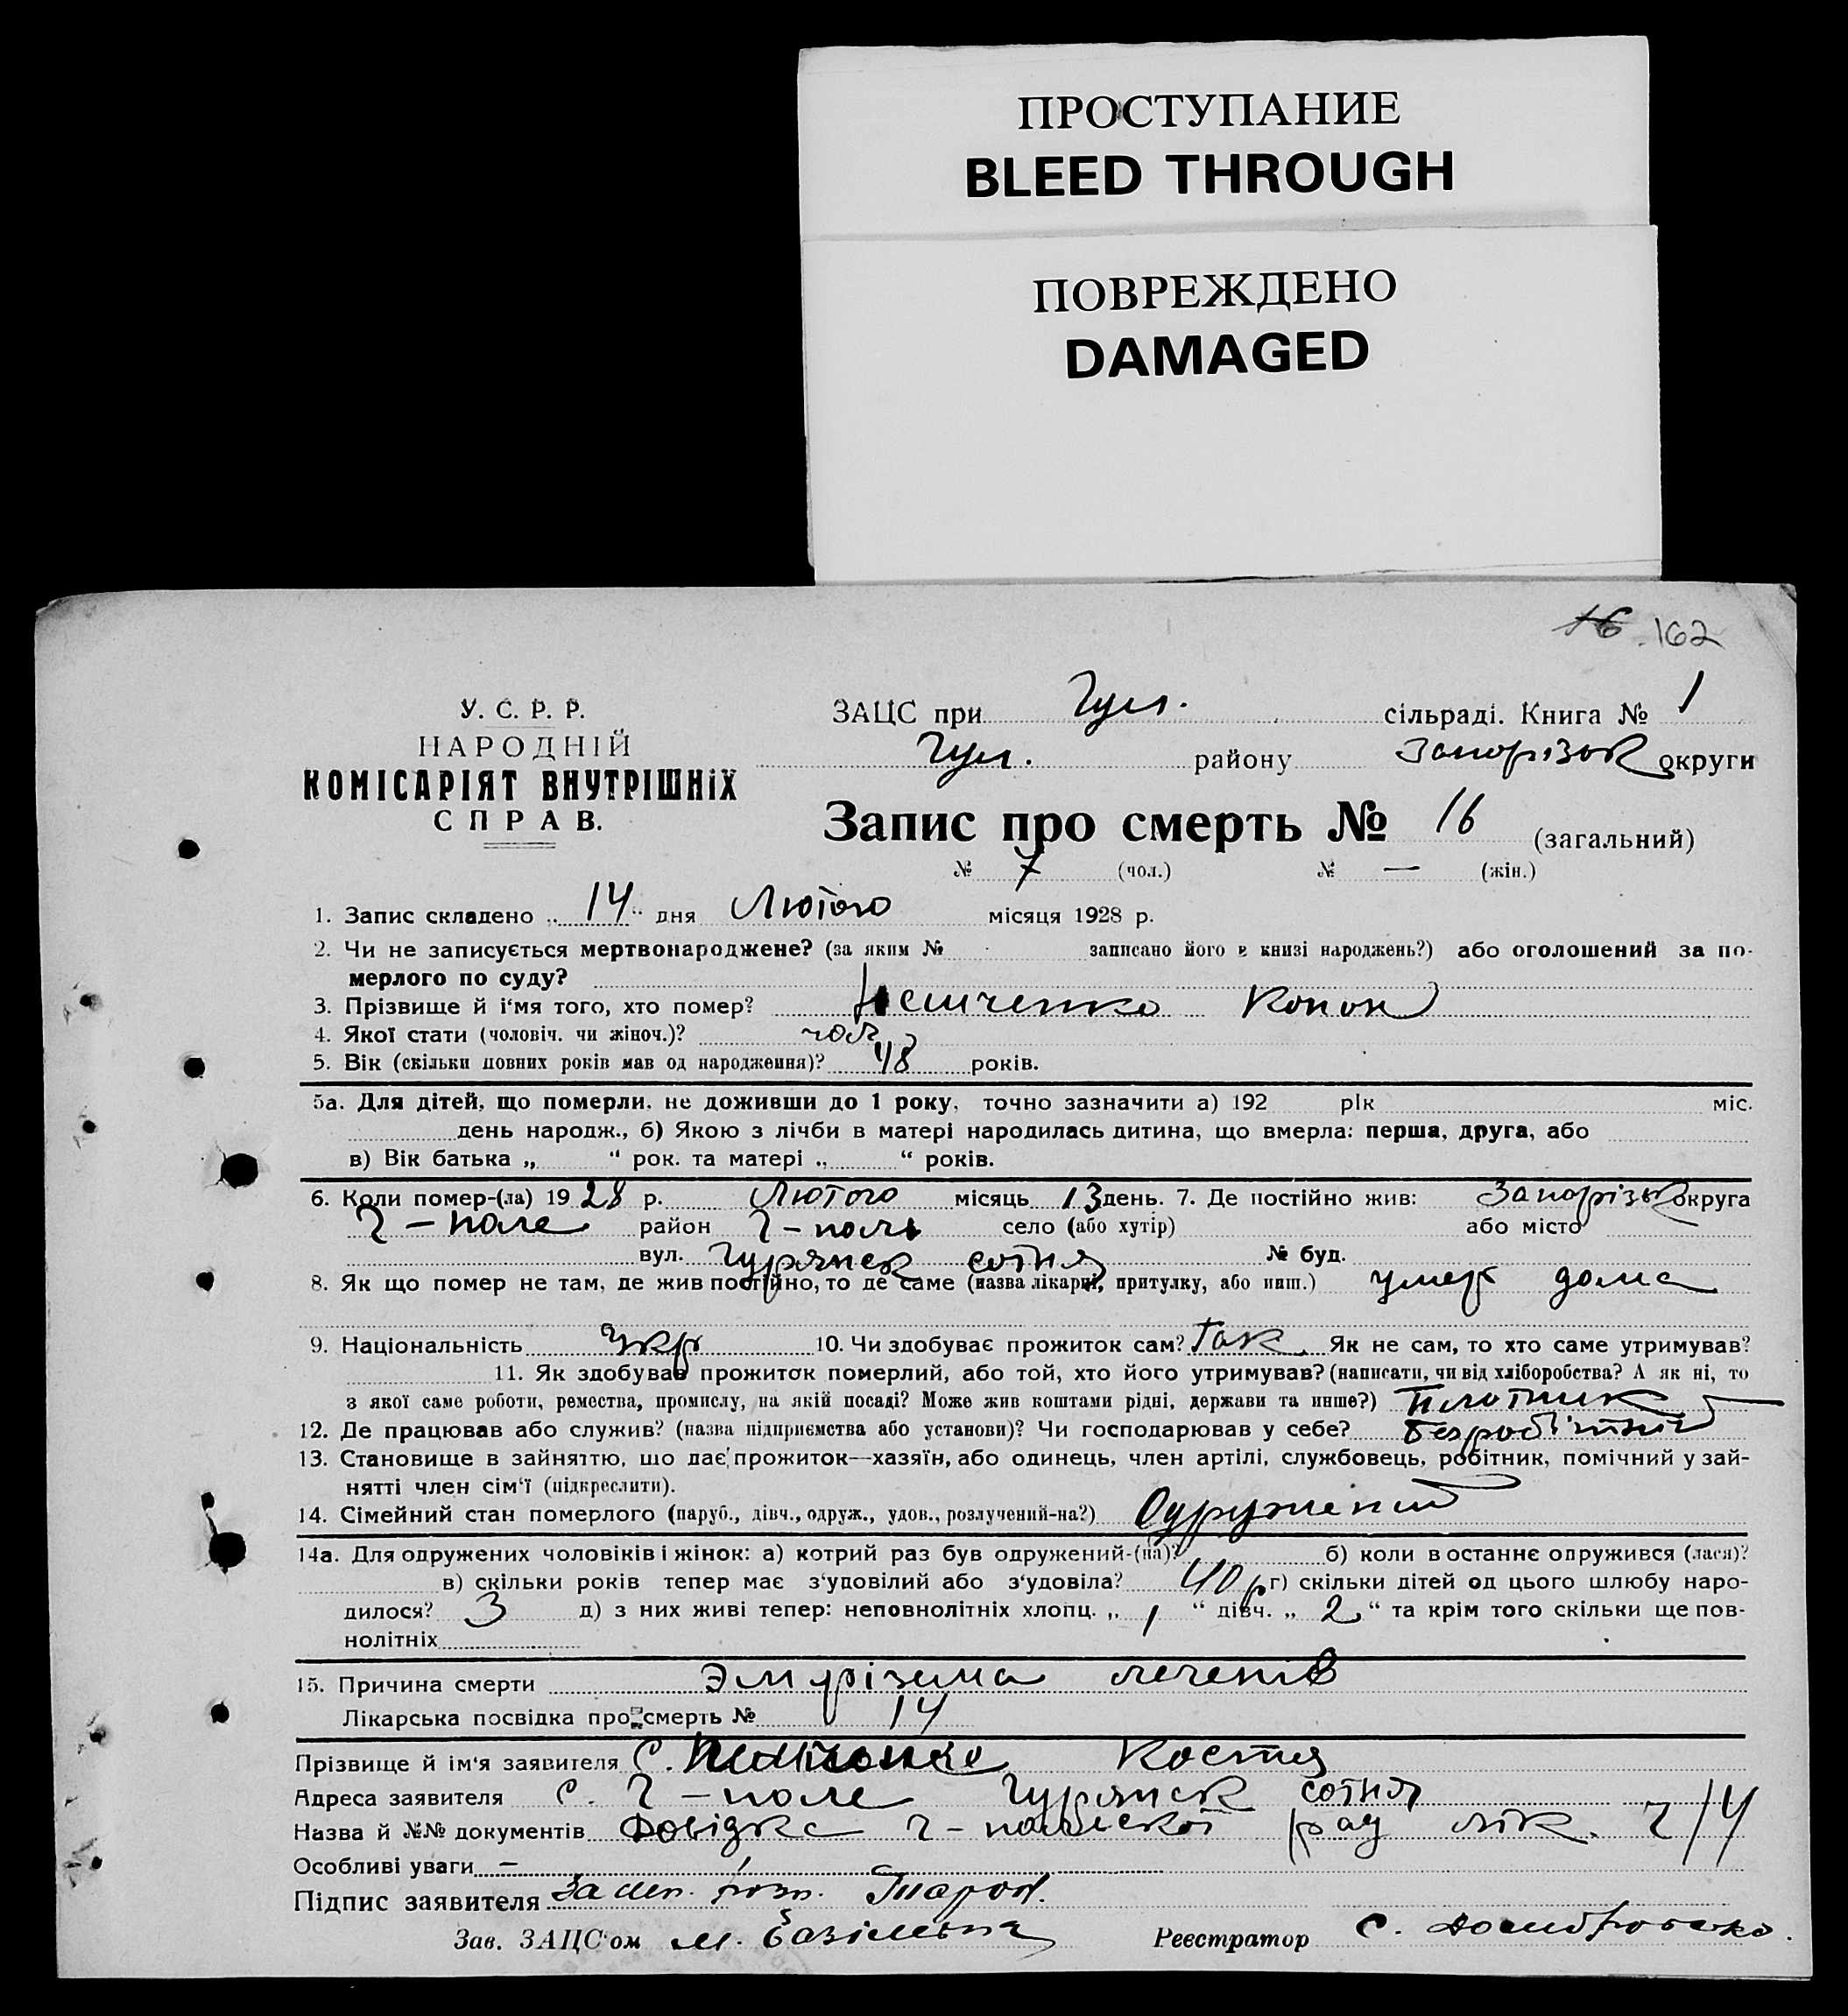 ПРОСТУПАНИЕ
BLEED THROUGH
ПОВРЕЖДЕНО
DAMAGED
16 162
У. С. Р. Р.
НАРОДНІЙ
КОМІСАРІЯТ ВНУТРІШНІХ
СПРАВ.
ЗАЦС при Гул. сільраді. Книга № 1
Гул. району Запорізьк округи
Запис про смерть № 16 (загальний)
№ 7 (чол.) № — (жін.)
1. Запис складено „ 14 " дня Лютого місяця 1928 р.
2. Чи не записується мертвонароджене? (за яким № записано його в книзі народжень?) або оголошений за по-
мерлого по суду?
3. Прізвище й і'мя того, хто помер? Конон
4. Якої стати (чоловіч. чи жіноч.)? чол
5. Вік (скільки повних років мав од народження)? 48 років.
5а. Для дітей, що померли, не доживши до 1 року, точно зазначити а) 192 рік міс.
день народж., б) Якою з лічби в матері народилась дитина, що вмерла: перша, друга, або
в) Вік батька „ " рок. та матері „ " років.
6. Коли помер-(ла) 1928 р. Лютого місяць 13 день. 7. Де постійно жив: Запорізьк округа
Г-поле район Г-поль село (або хутір) або місто
вул. Гурянск сотня № буд.
8. Як що помер не там, де жив постійно, то де саме (назва лікарні, притулку, або инш.) умер дома
9. Національність Укр 10. Чи здобуває прожиток сам? Так. Як не сам, то хто саме утримував?
11. Як здобував прожиток померлий, або той, хто його утримував? (написати, чи від хліборобства? А як ні, то
з якої саме роботи, ремества, промислу, на якій посаді? Може жив коштами рідні, держави та инше?) Плотник
12. Де працював або служив? (назва підприємства або установи)? Чи господарював у себе? безробітний
13. Становище в зайняттю, що дає прожиток—хазяїн, або одинець, член артілі, службовець, робітник, помічний у зай-
нятті член сім'ї (підкреслити).
14. Сімейний стан померлого (паруб., дівч., одруж., удов., розлучений-на?) Одружений
14а. Для одружених чоловіків і жінок: а) котрий раз був одружений-(на)? б) коли востаннє одружився (лася)?
в) скільки років тепер має з'удовілий або з'удовіла? 40 р г) скільки дітей од цього шлюбу наро-
дилося? 3 д) з них живі тепер: неповнолітніх хлопц. „ 1 " дівч. „ 2 " та крім того скільки ще пов-
нолітніх
15. Причина смерти Эмфізима легенів
Лікарська посвідка про смерть № 14
Прізвище й ім'я заявителя С. Костя
Адреса заявителя с. Г-поле Гурянск сотня
Назва й №№ документів Довідка Г-польскої рад лік. 214
Особливі уваги —
Підпис заявителя
Зав. ЗАЦС'ом М. Реєстратор С.